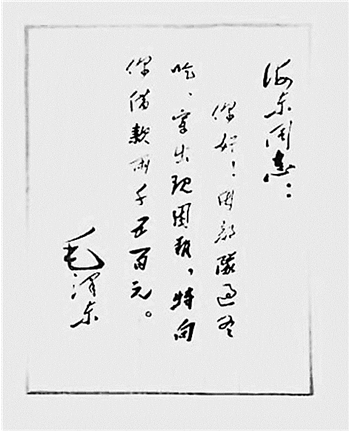 海东同志：
你好！因部隊过冬
吃、穿出现困难，特向
你借款两千五百元。
毛泽东